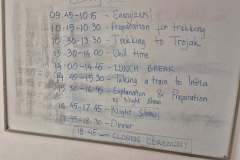 09.45-10.15 - Energizers
10.15-10.30 - Preparation for trekking
10.30-13.30 - Trekking to Trojak
13.30-14.00 - Chill time
14.00-14.45 - LUNCH BREAK
14.45-15.30 - Taking a train to
15.30-16.45 - Explanation & Preparation
to Night
16.45-17.45 - Night
17.45-18.30 - Dinner
18.45 - CLOSING CEREMONY